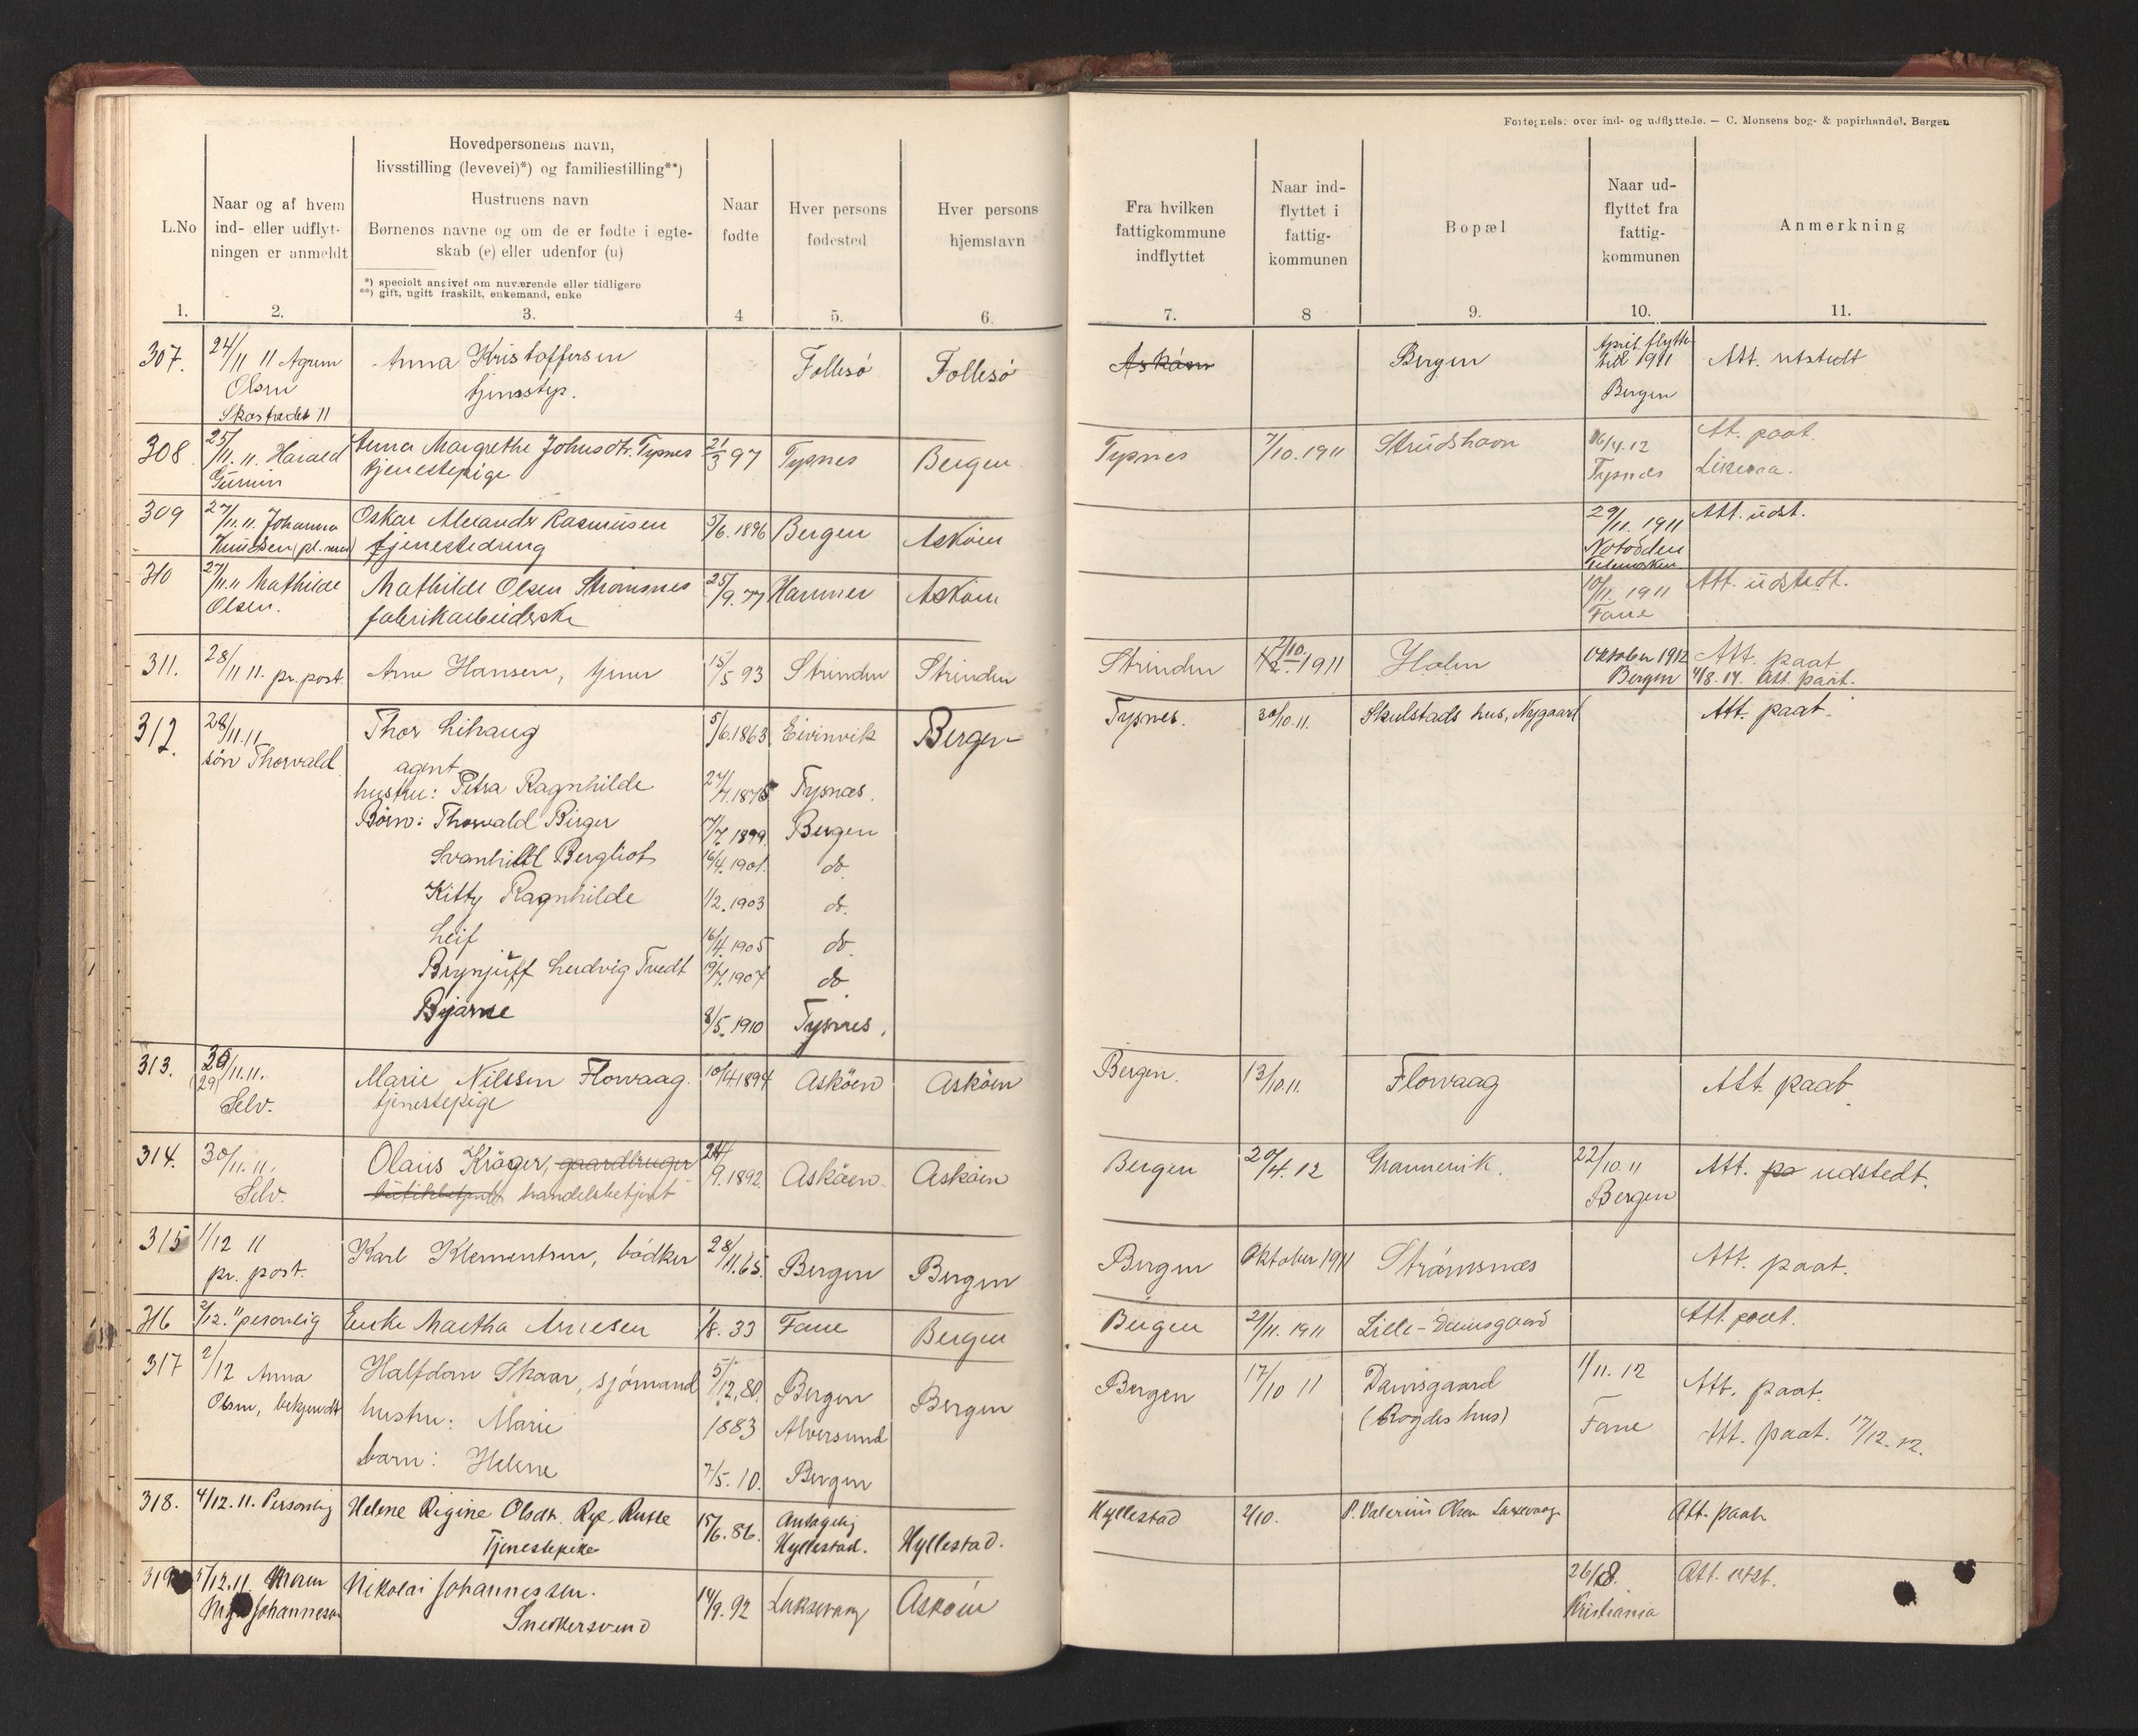 Fortegnelse over ind- og udflyttede. — C. Monsens bog- & papirhandel. Bergen
L.No
Naar og af hvem
ind- eller udflyt-
ningen er anmeldt
Hovedpersonens navn,
livsstilling (levevei)*) og familiestilling**)
Hustruens navn
Børnenes navne og om de er fødte i egte-
skab (e) eller udenfor (u)
*) specielt angivet om nuværende eller tidligere
**) gift, ugift fraskilt, enkemand, enke
Naar
fødte
Hver persons
fødested
Hver persons
hjemstavn
Fra hvilken
fattigkommune
indflyttet
Naar ind-
flyttet i
fattig-
kommunen
Bopæl
Naar ud-
flyttet fra
fattig-
kommunen
Anmerkning
1. 2. 3. 4 5. 6. 7. 8 9. 10. 11.
307. 24/11 11 Anna Kristoffersen Follesö Follesö Asköen Bergen April flyttet Att. utstedt
Olsen tjenestep. till 1911
Skostrædet 11 Bergen
308 25/11. 11. Harald Anna Margrethe Johnsdtr. Tysnes 21/3 97 Tysnes Bergen Tysnes 7/10. 1911 Strudshavn 16/4.12 Att. paat.
tjenestepige Tysnes
309 27/11. 11. Johanna Oskar Alexander Rasmussen 5/6. 1896 Bergen Asköen 29/11. 1911 Att. udst.
Knudsen (pl. mor) tjenestedreng Notodden
Telemarken
310 27/11. 11 Mathilde Mathilde Olsen Strømsnes 25/9. 77 Hammer Asköen 10/11. 1911 Att. udstedt.
Olsen. fabrikarbeiderske Fane
311. 28/11 11. pr. post. Arne Hansen, tjener 15/5 93 Strinden Strinden Strinden 2/10. 1911 Holen Oktober 1912 Att. paat
Bergen 4/8. 14. Att. paat.
312. 28/11. 11 Thor Lihaug 5/6. 1863 Eivinvik Bergen Tysnes. 30/10. 11. Skulstads hus, Nygaard Att. paat.
sön Thorvald agent
hustru: Petra Ragnhilde 27/7. 1875 Tysnæs.
Börn: Thorvald Birger 17/7. 1899. Bergen
Svanhild Bergliot 16/4. 1901. do.
Kitty Ragnhilde 1/2. 1903 do.
Leif 16/4. 1905 do.
Brynjulf Ludvig Tvedt 19/7. 1907 do
Bjarne 8/5. 1910 Tysnes.
313. 30/11. 11. Marie Nilssen Flowaag. 10/4. 1894 Asköen Asköen Bergen. 13/10. 11. Flowaag Att. paat.
(29) tjenestepige
Selv.
314. 30/11. 11. Olaus Kröger, gaardbruger 24/9. 1892. Asköen Asköen Bergen 20/4. 12 Grannevik. 22/10. 11 Att. pa udstedt.
Selv. butikbetjent handelsbetjent Bergen
315 1/12 11 Karl Klementsen, bödker 28/11. 65. Bergen Bergen Bergen Oktober 1911 Strömsnæs Att. paat.
pr. post.
316 2/12. " personlig Enke Martha Arnesen 1/8. 33 Fane Bergen Bergen 29/11. 1911 Lille-Damsgaard Att. paat.
317 2/12 Anna Halfdan Skaar, sjömand 5/12. 80. Bergen Bergen Bergen 17/10 11 Damsgaard 1/11. 12 Att. paat.
Olsen, bekjendt hustru: Marie 1883 Alversund (Rogdes hus) Fane Att. paat. 17/12. 12.
barn: Helene 7/5. 10. Bergen
318. 4/12. 11. Personlig Helene Regine Olsdt. 15/6. 86. Antagelig Hyllestad. Hyllestad 2/10. P. Valerius Olsen Laxevaag Att. paat
Tjenestepike Hyllestad.
319 5/12. 11. Nikolai Johannessen. 14/9. 92 Laksevaag Asköen 26/8. Att. utst.
Johannesen Snedkersvend Kristiania